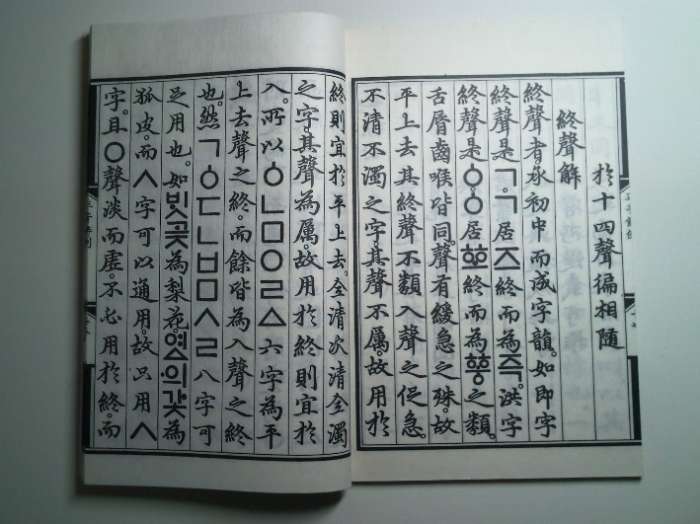 於十四聲徧相隨
終聲解
終聲者承初中而成字韻。如即字
終聲是ㄱ。ㄱ居즈終而為즉。洪字
終聲是ㆁ。ㆁ居ᅘᅩ終而為ᅘᅩᇰ之類。
舌脣齒喉皆同。聲有緩急之殊。故
平上去其終聲不類入聲之促急。
不清不濁之字。其聲不厲。故用於
終則宜於平上去。全清次清全濁
之字。其聲為厲。故用於終則宜於
入。所以ㆁㄴㅁㅇㄹㅿ六字為平
上去聲之終。而餘皆為入聲之終
也。然ㄱㆁㄷㄴㅂㅁㅅㄹ八字可
足用也。如빗곶為梨花。여ᇫ의갗為
狐皮。而ㅅ字可以通用。故只用ㅅ
字。且ㅇ聲淡而虛。不必用於終。而